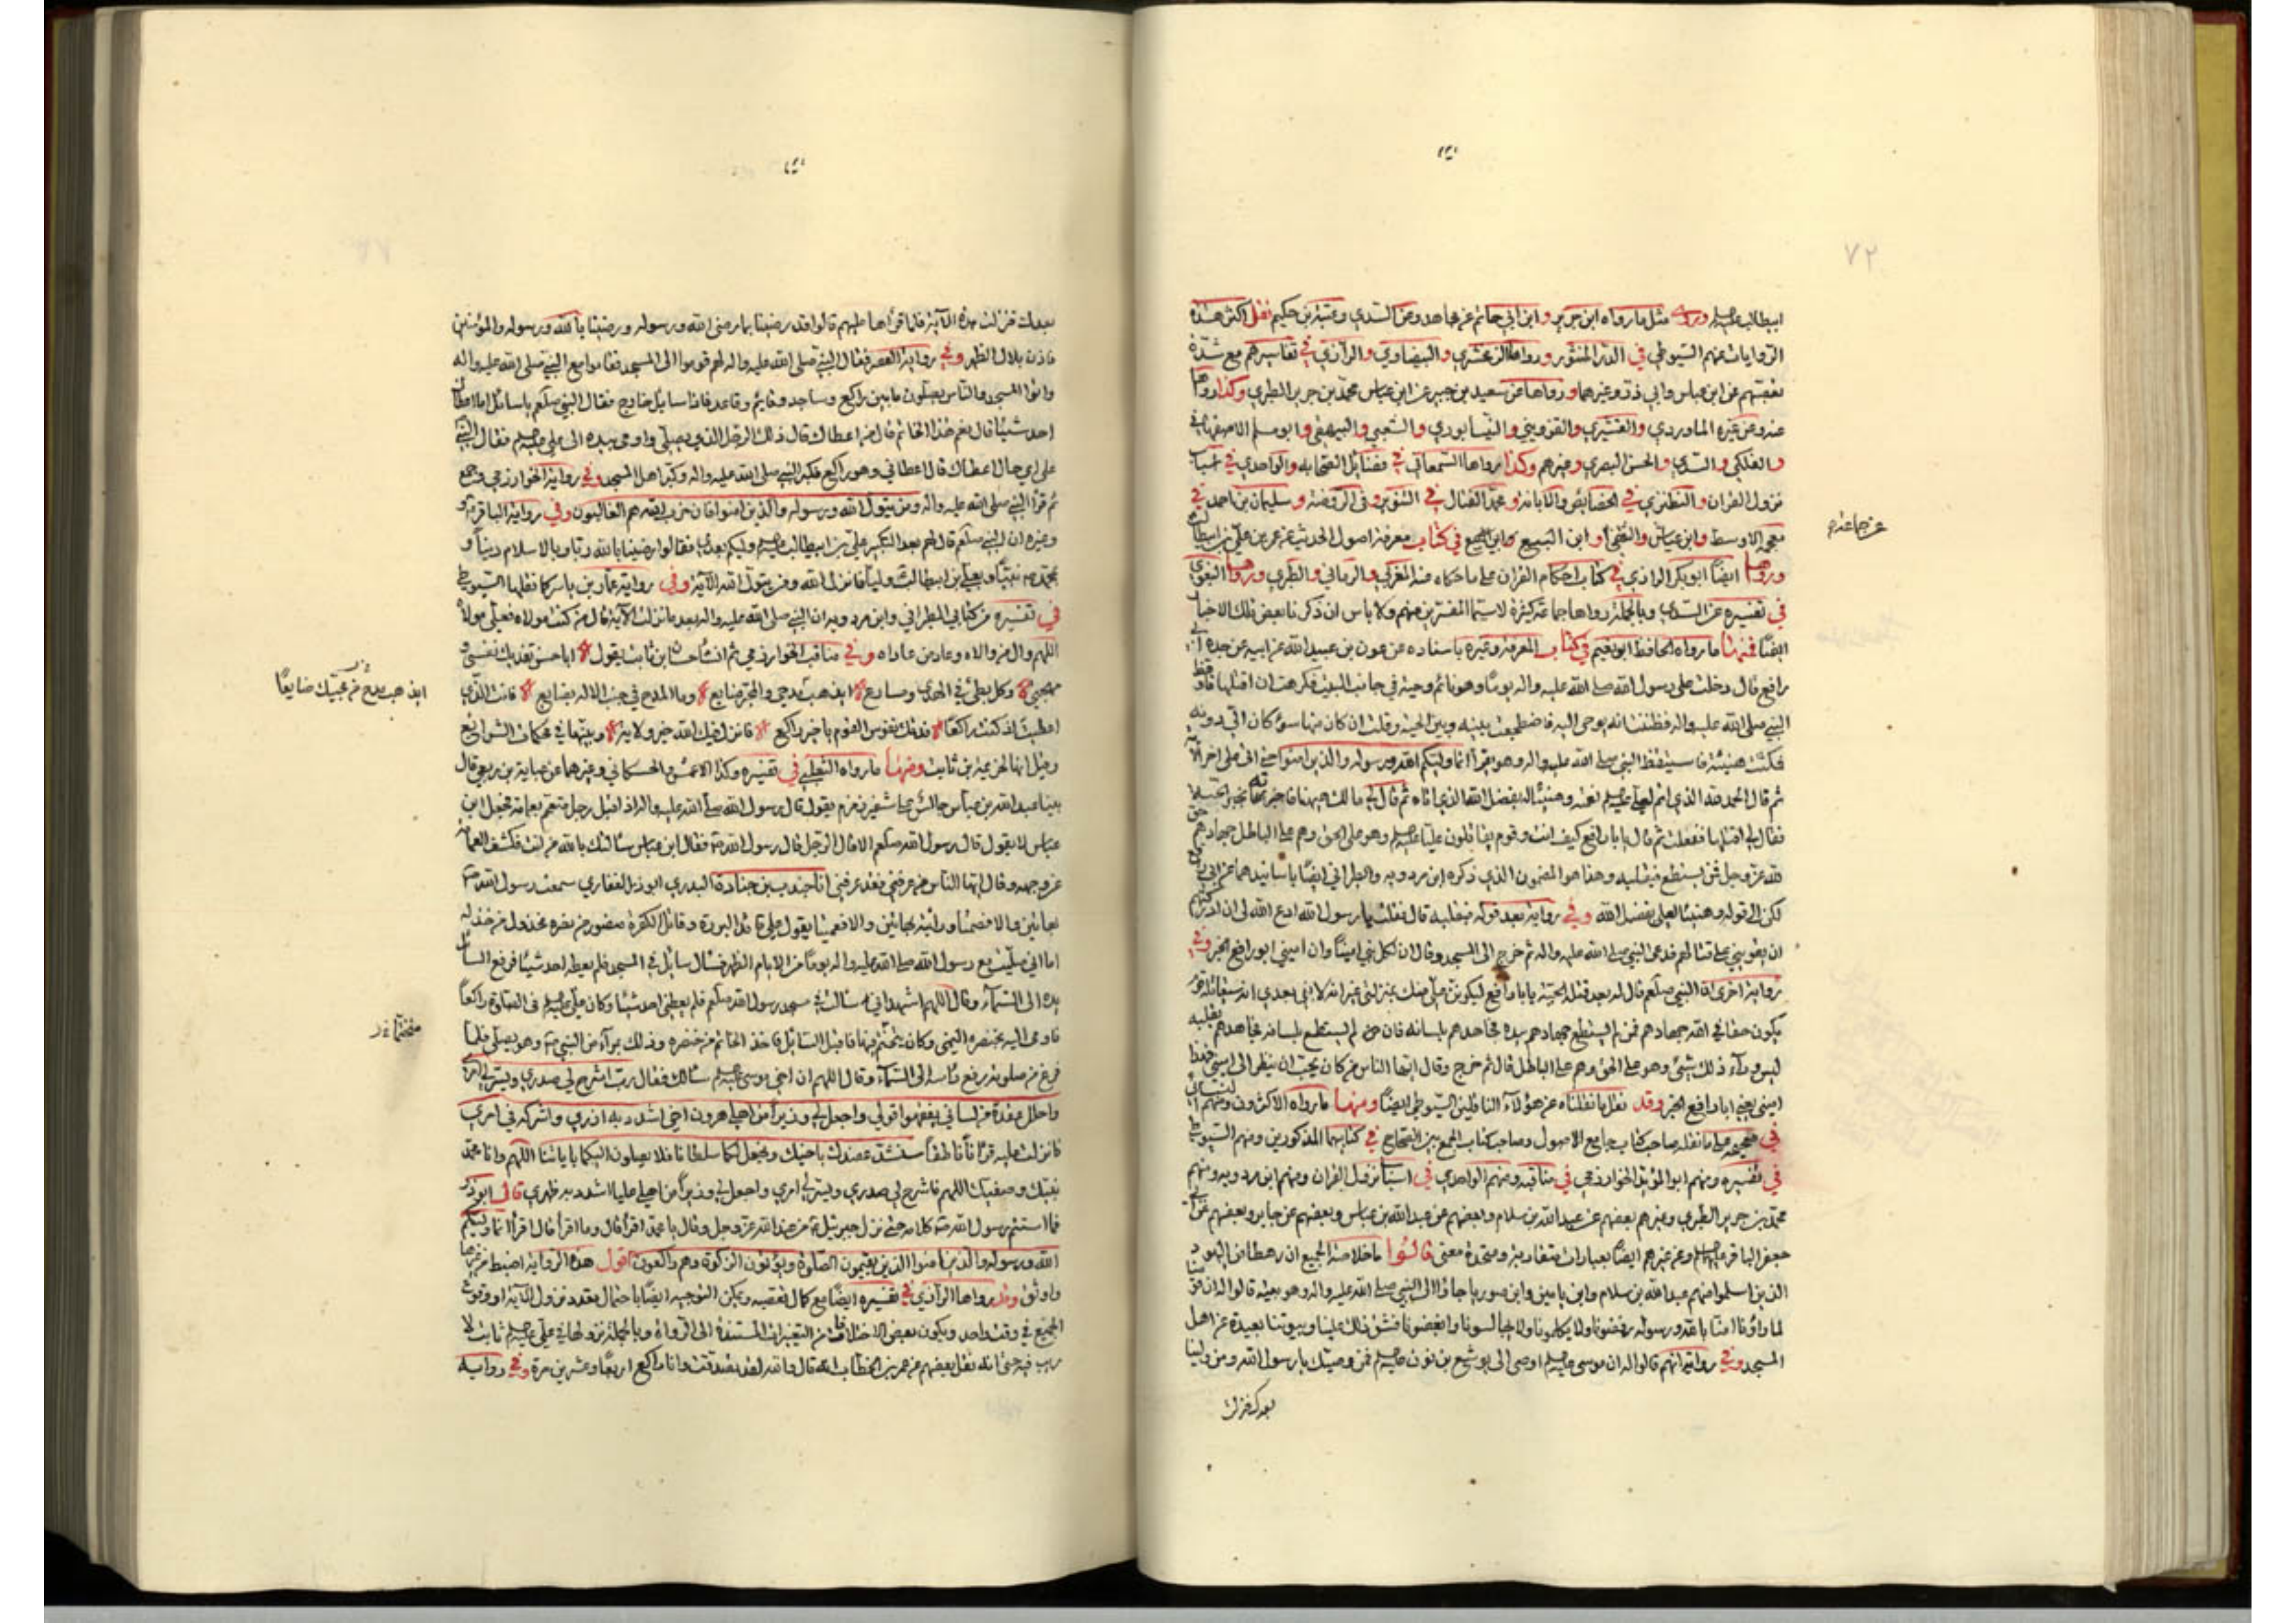 ٧٢
ابيطالب عليهم وروى مثل ما رواه ابن جرير وابن ابي حاتم عن مجاهد وعن السدي وعتبة بن حكيم نقل اكثر هذه
الروايات عنهم السيوطي في الدر المنثور ورواها الزمخشري والبيضاوي والرازي في تفاسيرهم مع شدة
تعصبهم عن ابن عباس وابي ذر وغيرهما ورواها عن سعيد بن جبير عن ابن عباس محمد بن جرير الطبري وكذا رواها
عنه وعن غيره الماوردي والقشيري والقزويني والنيسابوري والثعلبي والبيهقي وابو مسلم الاصفهاني
والفلكي والسدي والحسن البصري وغيرهم وكذا رواها السمعاني في فضائل الصحابه والواحدي في اسباب
نزول القران والنطنزي في الخصايص والابانه ومحمد الفتال في التنوير وفي الروضه وسليمان بن احمد في
معجمه الاوسط وابن عياش والثقفي وابن البيع في كتاب معرفة اصول الحديث عن عمر بن علي بن ابيطالب
عن جماعة
ورواها ايضا ابو بكر الرازي في كتاب احكام القران على ما حكاه عنه المغربي والرماني والطبري ورواها البغوي
في تفسيره عن السدي وبالجملة رواها جماعة كثيرة لا سيما المفسرين منهم ولا باس ان ذكرنا بعض تلك الاخبار
ايضا فمنها ما رواه الحافظ ابو نعيم في كتاب المعرفة وغيره باسناده عن عون بن عبيد الله عن ابيه عن جده ابي
رافع قال دخلت على رسول الله صلى الله عليه واله يوما وهو نائم وحية في جانب البيت فكرهت ان اقتلها فاوقظ
النبي صلى الله عليه واله فظننت انه يوحى اليه فاضطجعت بينه وبين الحية وقلت ان كان منها سوء كان الي دونه
فمكثت هنيئة فاستيقظ النبي صلى الله عليه واله وهو يقرأ انما وليكم الله ورسوله والذين امنوا حتى اتى على اخر الآية
ثم قال الحمد لله الذي اتم لعلي عليهم نعمه وهنيئا له بفضل الله الذي اتاه ثم قال لي ما لك هيهنا فاخبرته بخبر الحية
فقال لي اقتلها ففعلت ثم قال يا با رافع كيف انت وقوم يقاتلون عليا عليهم وهو على الحق وهم على الباطل جهادهم حق
لله عز وجل فمن لم يستطع فبقلبه وهذا هو المضمون الذي ذكره ابن مردويه والطبراني ايضا باسانيدهما عن ابي رافع
لكن الى قوله وهنيئا لعلي بفضل الله وفي رواية بعد قوله فبقلبه قال فقلت يا رسول الله ادع الله لي ان ادركتهم
ان يقويني على قتالهم فدعى النبي صلى الله عليه واله ثم خرج الى المسجد وقال ان لكل نبي امينا وان اميني ابو رافع الخبر وفي
رواية اخرى ان النبي صلعم قال له بعد قتله الحية يا با رافع ليكونن علي منك بمنزلتي غير انه لا نبي بعدي انه سيقاتله قوم
يكون حقا في الله جهادهم فمن لم يستطع جهادهم بيده فجاهدهم بلسانه فان لم يستطع بلسانه فجاهدهم بقلبه
ليس وراء ذلك شئ وهو على الحق وهم على الباطل قال ثم خرج وقال ايها الناس من كان يحب ان ينظر الى اميني فهذا
اميني يعني ابا رافع الخبر وقد نقل ما نقلناه عن هؤلاء الناقلين السيوطي ايضا ومنها ما رواه الاكثرون ومنهم النسائي
في صحيحه على ما نقله صاحب كتاب جامع الاصول وصاحب كتاب الجمع بين الصحاح في كتابيهما المذكورين ومنهم السيوطي
في تفسيره ومنهم ابو المؤيد الخوارزمي في مناقبه ومنهم الواحدي في اسباب نزول القران ومنهم ابن مردويه ومنهم
محمد بن جرير الطبري وغيرهم بعضهم عن عبد الله بن سلام وبعضهم عن عبد الله بن عباس وبعضهم عن جابر وبعضهم عن ابي
جعفر الباقر عليهم وعن غيرهم ايضا بعبارات متقاربة ومتحدة معنى قالوا ما خلاصة الجميع ان رهطا من اليهود
الذين اسلموا منهم عبد الله بن سلام وابن يامين وابن صوريا جاؤا الى النبي صلى الله عليه واله وهو بعينه قالوا له ان قومنا
لما راونا امنا بالله ورسوله رفضونا ولا يكلمونا ولا يجالسونا وابغضونا فشق ذلك علينا وبيوتنا بعيدة عن اهل
المسجد وفي رواية انهم قالوا له ان موسى عليهم اوصى الى يوشع بن نون عليهم فمن وصيك يا رسول الله ومن ولينا
بعدك فنزلت
بعدك فنزلت هذه الآية فلما قرأها عليهم قالوا قد رضينا بما رضى الله ورسوله ورضينا بالله ورسوله والمؤمنين
فاذن بلال الظهر وفي رواية العصر فقال النبي صلى الله عليه واله لهم قوموا الى المسجد فقاموا مع النبي صلى الله عليه واله
واتوا المسجد والناس يصلون ما بين راكع وساجد وقايم وقاعد فاذا سايل خارج فقال النبي صلعم يا سائل اما اعطاك
احد شيئا قال نعم هذا الخاتم قال من اعطاك قال ذلك الرجل الذي يصلي واومى بيده الى علي عليهم فقال النبي
على اي حال اعطاك قال اعطاني وهو راكع فكبر النبي صلى الله عليه واله وكبر اهل المسجد وفي رواية الخوارزمي وجمع
ثم قرأ النبي صلى الله عليه واله ومن يتول الله ورسوله والذين امنوا فان حزب الله هم الغالبون وفي رواية الباقر و
وغيره ان النبي صلعم قال لهم بعد التكبير علي بن ابيطالب عليهم وليكم بعدي فقالوا رضينا بالله ربا وبالاسلام دينا و
بمحمد نبيا وبعلي بن ابيطالب وليا فانزل الله ومن يتول الله الآية وفي رواية عمار بن ياسر كما نقلها السيوطي
في تفسيره من كتابي الطبراني وابن مردويه ان النبي صلى الله عليه واله بعد ما نزلت الآية قال من كنت مولاه فعلي مولاه
اللهم وال من والاه وعاد من عاداه وفي مناقب الخوارزمي ثم انشأ حسان بن ثابت يقول ابا حسن تفديك نفسي و
مهجتي وكل بطئ في الهدى ومسارع ايذهب مدحي والمحبر ضايع وما المدح في جنب الاله بضايع فانت الذي
ايذهب مدح من محبيك ضايعا
اعطيت اذ كنت راكعا فدتك نفوس القوم يا خير راكع فانزل فيك الله خير ولاية وبينها في محكمات الشرايع
وقيل انها لخزيمة بن ثابت ومنها ما رواه الثعلبي في تفسيره وكذا الاعمش والحسكاني وغيرهما عن عباية بن ربعي قال
بينا عبد الله بن عباس جالس على شفير زمزم يقول قال رسول الله صلى الله عليه واله اذ اقبل رجل متعمم بعمامة فجعل ابن
عباس لا يقول قال رسول الله صلعم الا قال الرجل قال رسول الله فقال ابن عباس سألتك بالله من انت فكشف العمامة
عن وجهه وقال ايها الناس من عرفني فقد عرفني انا جندب بن جنادة البدري ابوذر الغفاري سمعت رسول الله
بهاتين والا فصمتا ورأيته بهاتين والا فعميتا يقول علي قائد البررة وقاتل الكفرة منصور من نصره مخذول من خذله
اما اني صليت مع رسول الله صلى الله عليه واله يوما من الايام الظهر فسأل سائل في المسجد فلم يعطه احد شيئا فرفع السائل
يده الى السماء وقال اللهم اشهد اني سألت في مسجد رسول الله صلعم فلم يعطني احد شيئا وكان علي عليهم في الصلوة راكعا
فاومى اليه بخنصره اليمنى وكان يتختم فيها فاقبل السائل فاخذ الخاتم من خنصره وذلك بمرآء من النبي وهو يصلي فلما
فرغ من صلوته رفع رأسه الى السماء وقال اللهم ان اخي موسى عليهم سألك فقال رب اشرح لي صدري ويسر لي امري
واحلل عقدة من لساني يفقهوا قولي واجعل لي وزيرا من اهلي هرون اخي اشدد به ازري واشركه في امري
فانزلت عليه قرآنا ناطقا سنشد عضدك باخيك ونجعل لكما سلطانا فلا يصلون اليكما باياتنا اللهم وانا محمد
نبيك وصفيك اللهم فاشرح لي صدري ويسر لي امري واجعل لي وزيرا من اهلي عليا اشدد به ظهري قال ابوذر
فما استتم رسول الله كلامه حتى نزل جبرئيل من عند الله عز وجل وقال يا محمد اقرأ قال وما اقرأ قال اقرأ انما وليكم
الله ورسوله والذين امنوا الذين يقيمون الصلوة ويؤتون الزكوة وهم راكعون اقول هذه الرواية اضبط من غيرها
واوثق وقد رواها الرازي في تفسيره ايضا مع كمال تعصبه ويمكن التوجيه ايضا باحتمال تعدد نزول الآية او وقوع
الجميع في وقت واحد ويكون بعض الاختلافات من التغييرات المستندة الى الرواة وبالجملة نزولها في علي عليهم ثابت لا
ريب فيه حتى انه نقل بعضهم عن عمر بن الخطاب انه قال والله لقد تصدقت وانا راكع اربعا وعشرين مرة وفي رواية